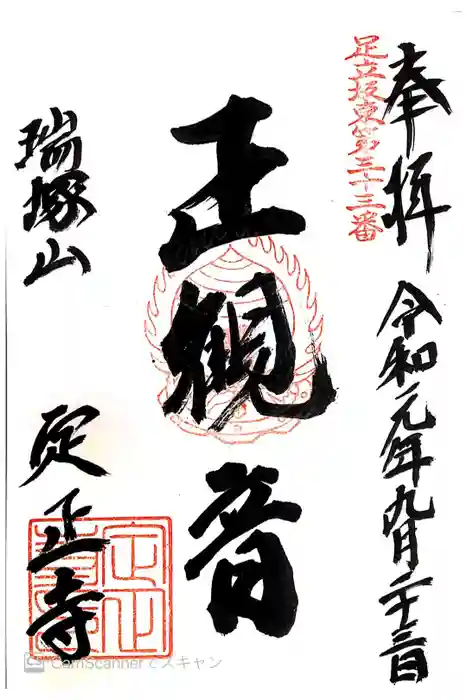 奉拝
足立坂東第三十三番
令和元年九月二十三日
正観音
瑞塚山
定正寺
CamScannerでスキャン